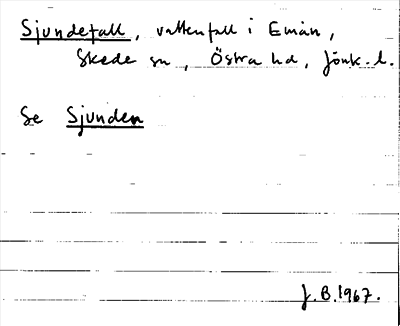 Sjundefall, vattenfall i Emån,
Skede sn, Östra hd, Jönk. l.
Se Sjunden
J.B. 1967.